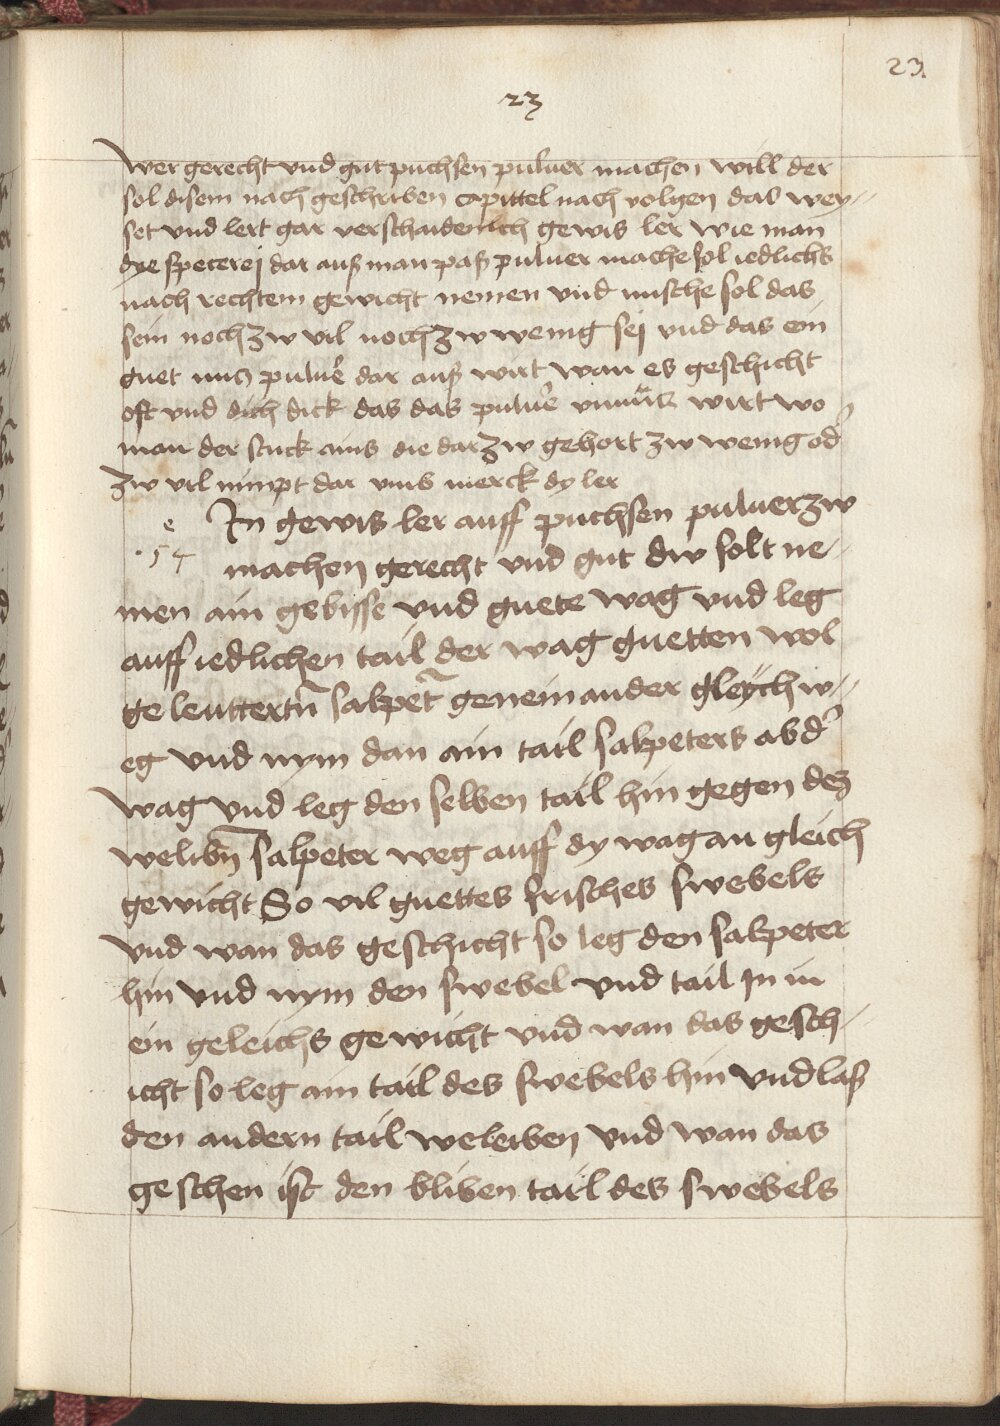 23.
23
wer gerecht vnd gut puchsen puluer machen will der
sol disem nach geschriben capittel nach volgen das wey-
set vnd lert gar verschaidenlich gewis ler wie man
dye specerej dar auß man paß puluer mache sol iedlichs
nach rechtem gewicht nemen vnd mische sol das
sein noch zw vil noch zw wenig sej vnd das ein
guet nucz puluer dar auß wirt wan es geschicht
oft vnd dich dick das das puluer vnnücz wirt wo
man der stuck ains die dar zw gehort zw wenig od
zw vil nimpt dar vmb merck dy ler
e In gewis ler auff puchsen puluer zw
54 machen gerecht vnd gut dw solt ne-
men ain gebisse vnd guete wag vnd leg
auff iedlichen tail der wag guetten wol
geleuttertn salpetr geneinander gleych w-
eg vnd nym dan ain tail salpeters ab d
wag vnd leg den selben tail hin gegen dez
welibn salpeter weg auff dy wag an gleich
gewicht So vil guettes frisches swebels
vnd wan das geschicht so leg den salpeter
hin vnd nym den swebel vnd tail In in
ein geleichs gewicht vnd wan das gesch-
icht so leg ain tail des swebels hin vnd laß
den andern tail weleiben vnd wan das
geschen ist den bliben tail des swebels